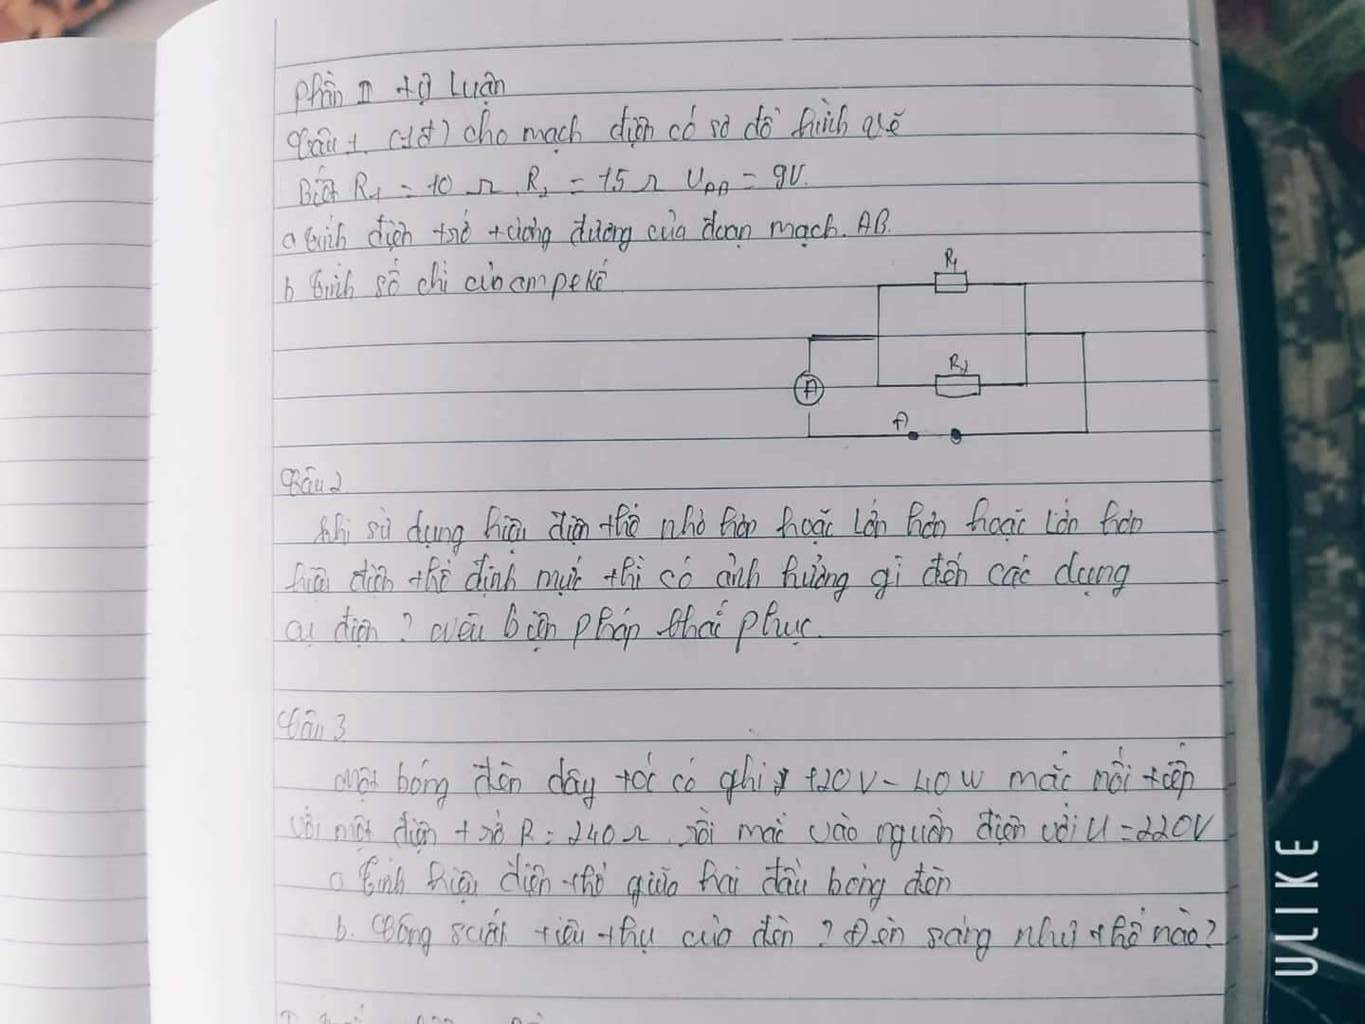 Phần II tự luận
Câu 1. (1đ) cho mạch điện có sơ đồ hình vẽ
Biết R1 = 10 Ω R2 = 15 Ω UAB = 9V.
a tính điện trở tương đương của đoạn mạch. AB.
b tính số chỉ của ampe kế
R1
R2
A
A
Câu 2
khi sử dụng hiệu điện thế nhỏ hơn hoặc lớn hơn hoặc lớn hơn
hiệu điện thế định mức thì có ảnh hưởng gì đến các dụng
cụ điện ? nêu biện pháp khắc phục.
Câu 3
Một bóng đèn dây tóc có ghi 120V - 40W mắc nối tiếp
với một điện trở R = 240 Ω rồi mắc vào nguồn điện với U = 220V
a tính hiệu điện thế giữa hai đầu bóng đèn
b. Công suất tiêu thụ của đèn ? Đèn sáng như thế nào?
ULIKE